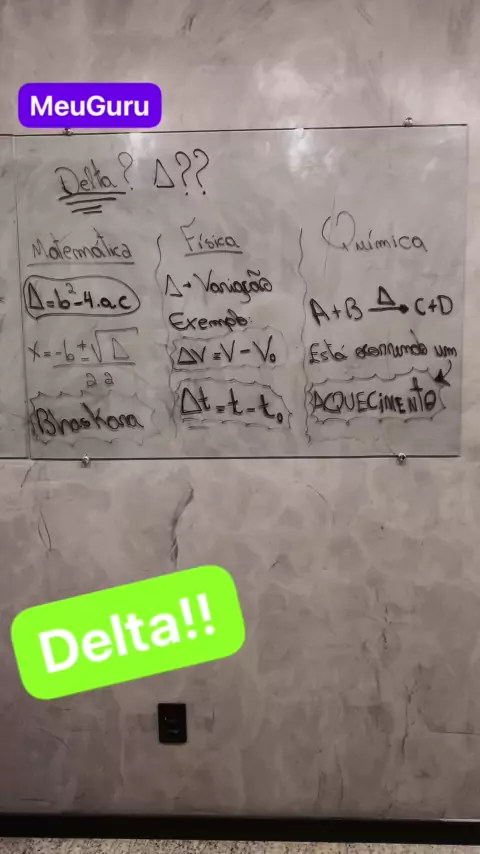 MeuGuru
Delta? Δ??
Matemática
Δ=b²-4.a.c
x=-b±√Δ
2a
Bhaskara
Física
Δ→Variação
Exemplo:
ΔV=V-V₀
Δt=t-t₀
Química
A+B Δ→ C+D
Está ocorrendo um
AQUECIMENTO
Delta!!